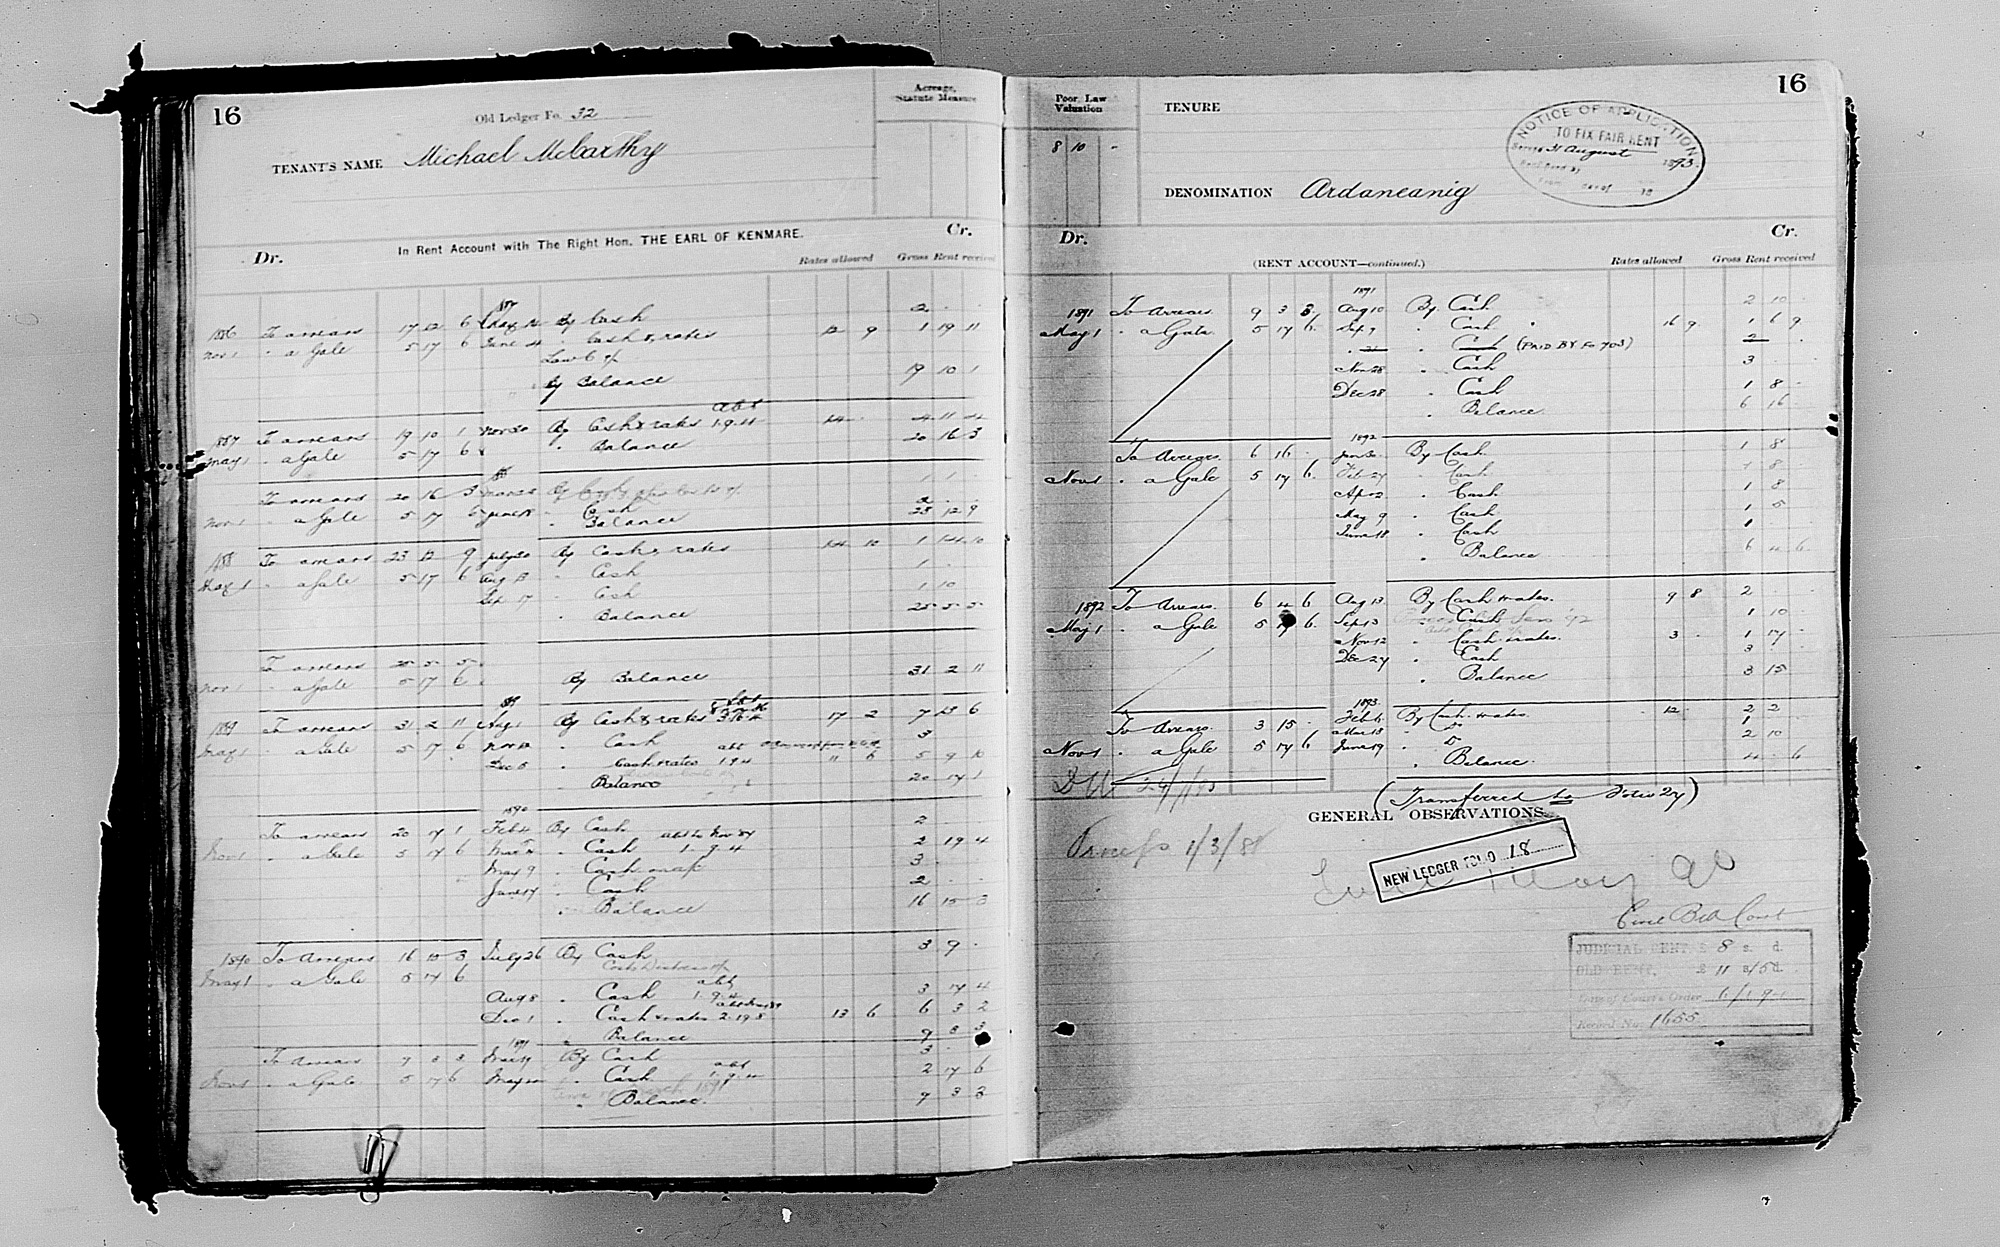 16
Old Ledger Fo. 32
Acreage, Statute Measure
TENANT'S NAME Michael McCarthy
In Rent Account with The Right Hon. THE EARL OF KENMARE.
Dr. Cr.
Rates allowed Gross Rent received
1886 To arrears 17 12 6 By Cash 2 . .
Nov 1 " a Gale 5 17 6 June 4 " Cash & rates 12 9 1 19 11
By Balance 19 10 1
1887 To arrears 19 10 1 Nov 30 By Cash & rates abt 1.9.4 14 . 4 11 4
May 1 " a Gale 5 17 6 " Balance 20 16 3
To arrears 20 16 3 By 1 1 .
Nov 1 " a Gale 5 17 6 June 18 " Cash 2 . .
" Balance 23 12 9
1888 To arrears 23 12 9 July 30 By Cash & rates 14 10 1 14 10
May 1 " a Gale 5 17 6 Aug 13 " Cash 1 . .
Sep 17 " Cash 1 10 .
" Balance 25 5 5
To arrears 25 5 5
Nov 1 " a Gale 5 17 6 By Balance 31 2 11
1889 To arrears 31 2 11 Aug 1 By Cash & rates 17 2 7 13 6
May 1 " a Gale 5 17 6 Nov 12 " Cash 3
Dec 5 " Cash & rates abt 1.9.4 11 6 5 9 10
Balance 20 17 1
1890
To arrears 20 17 1 Feb 4 By Cash 2
Nov 1 " a Gale 5 17 6 " Cash abt to Nov 89 1.9.4 2 19 4
May 9 " Cash 3
June 17 " Cash 2
" Balance 16 15 3
1890 To Arrears 16 15 3 July 26 By Cash 3 9 .
May 1 " a Gale 5 17 6
Aug 8 " Cash abt 1.9.4 3 17 4
Dec 1 " Cash & rates 2.19.8 13 6 6 3 2
" Balance 9 3 3
1891
To Arrears 9 3 3 Mar 19 By Cash 3
Nov 1 " a Gale 5 17 6 May " Cash abt 1.9.4 2 17 6
" Balance 9 3 3
16
Poor Law Valuation
8 10 -
TENURE
NOTICE OF APPLICATION
TO FIX FAIR RENT
Served 31 August 1893
DENOMINATION Ardaneanig
Dr. Cr.
(RENT ACCOUNT—continued.)
Rates allowed Gross Rent received
1891
1891 To Arrears 9 3 3 Aug 10 By Cash 2 10 .
May 1 " a Gale 5 17 6 Sep 7 " Cash 16 9 1 6 9
" 21 " Cash (PAID BY Fo 703) 2
Nov 28 " Cash 3
Dec 28 " Cash 1 8 .
" Balance 6 16 .
1892
To Arrears 6 16 . Jan 30 By Cash 1 8
Nov 1 " a Gale 5 17 6 Feb 27 " Cash 1 8
Apr 2 " Cash 1 8
May 9 " Cash 1 5
June 18 " Cash 1
" Balance 6 4 6
1892 To Arrears 6 4 6 Aug 13 By Cash & rates. 9 8 2 . .
May 1 " a Gale 5 17 6 Sep 13 " Cash 1 10
Nov 12 " Cash & rates. 3 . 1 17 .
Dec 27 " Cash 3
" Balance 3 15 .
1893
To Arrears 3 15 . Feb 6 By Cash & rates. 12 . 2 2
Nov 1 " a Gale 5 17 6 Mar 18 " Do 1
June 19 " Do 2 10
" Balance. 4 . 6
(Transferred to Folio 27)
GENERAL OBSERVATIONS.
Process 1/3/88
NEW LEDGER FOLIO 18
May 90
Civil Bill Court
JUDICIAL RENT, £ 8 s. d.
OLD RENT, £ 11 s/5d.
Date of Court's Order 6/1/91
Record No. 1655